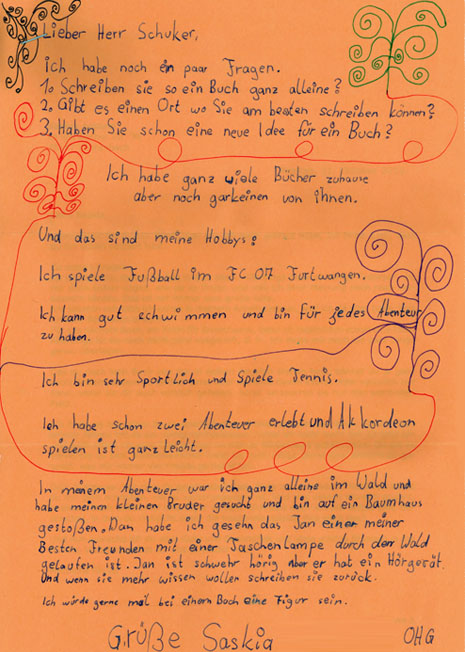 Lieber Herr Schuker,
ich habe noch ein paar Fragen.
1. Schreiben sie so ein Buch ganz alleine?
2. Gibt es einen Ort wo Sie am besten schreiben können?
3. Haben Sie schon eine neue Idee für ein Buch?
Ich habe ganz viele Bücher zuhause
aber noch garkeinen von ihnen.
Und das sind meine Hobbys:
Ich spiele Fußball im FC 07 Furtwangen.
Ich kann gut schwimmen und bin für jedes Abenteur
zu haben.
Ich bin sehr Sportlich und Spiele Tennis.
Ich habe schon zwei Abenteuer erlebt und Akkordeon
spielen ist ganz leicht.
In meinem Abenteuer war ich ganz alleine im Wald und
habe meinen kleinen Bruder gesucht und bin auf ein Baumhaus
gestoßen. Dan habe ich gesehn das Jan einer meiner
Besten Freunden mit einer Taschenlampe durch den Wald
gelaufen ist. Jan ist schwehr hörig aber er hat ein Hörgerät.
Und wenn sie mehr wissen wollen schreiben sie zurück.
Ich würde gerne mal bei einem Buch eine Figur sein.
Grüße Saskia OHG